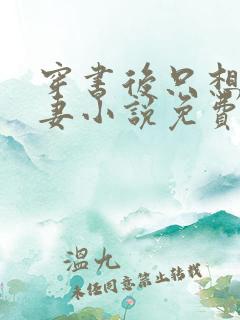 穿书後只想
妻小說免費
溫九
未经同意禁止转载